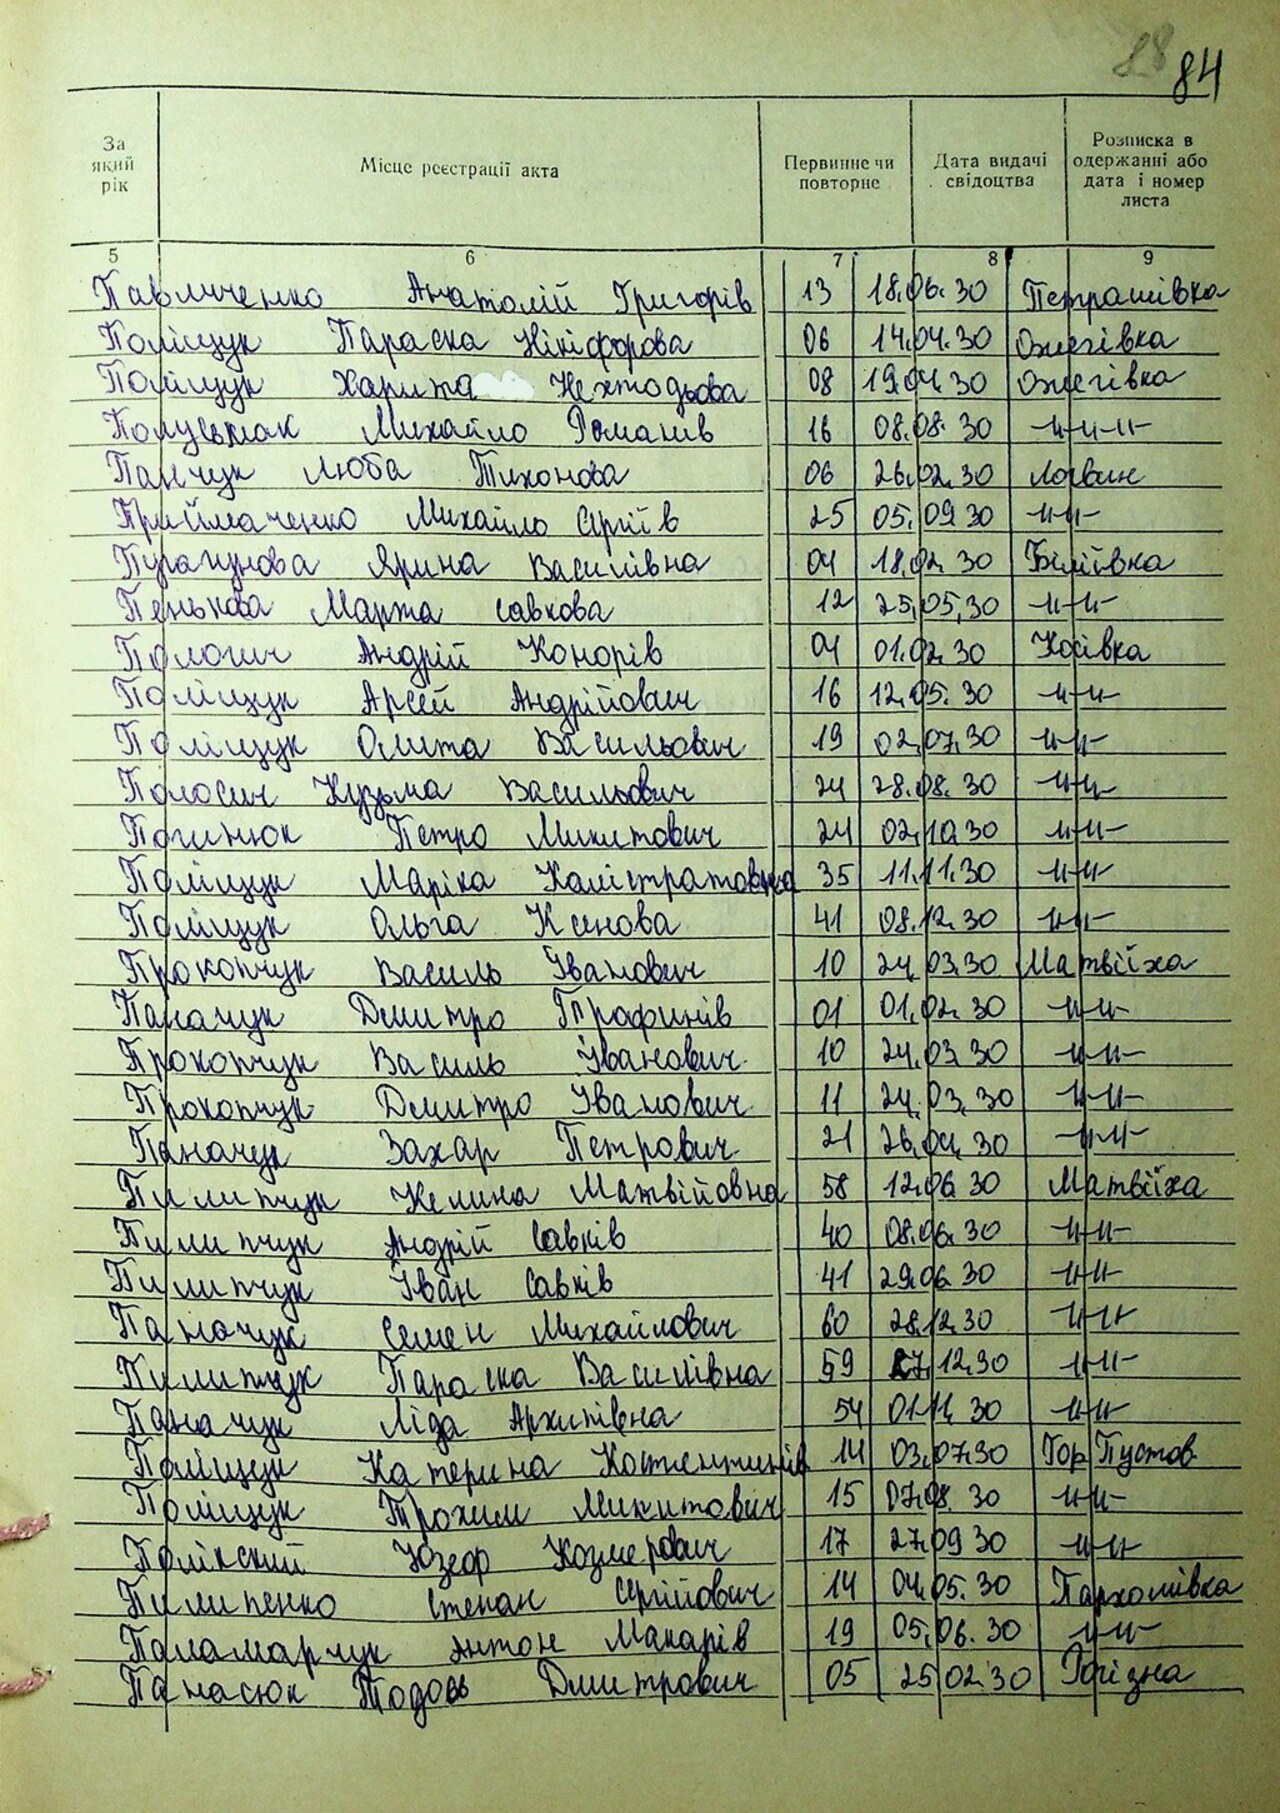 88 84
За який рік
Місце реєстрації акта
Первинне чи повторне
Дата видачі свідоцтва
Розписка в одержанні або дата і номер листа
5 6 7 8 9
Павличенко Анатолій Григорів 13 18.06.30 Петрашівка
Поліщук Параска Нікіфорова 06 14.04.30 Ожегівка
Поліщук Харита 08 19.04.30 Ожегівка
Михайло Романів 16 08.08.30 -//-//-
Панчук Люба Тихонова 06 26.02.30 Логвин
Приймаченко Михайло Сергіїв 25 05.09.30 -//-
Ярина Василівна 04 18.02.30 Біліївка
Пенькова Марта Савкова 12 25.05.30 -//-
Андрій Конорів 04 01.02.30 Косівка
Поліщук Арсей Андрійович 16 12.05.30 -//-
Поліщук Олита Васильович 19 02.07.30 -//-
Полосич Кузьма Васильович 24 28.08.30 -//-
Петро Микитович 24 02.10.30 -//-
Поліщук Маріка Калістратовна 35 11.11.30 -//-
Поліщук Ольга 41 08.12.30 -//-
Прокопчук Василь Іванович 10 24.03.30 Матвіїха
Паначук Дмитро Трофимів 01 01.02.30 -//-
Прокопчук Василь Іванович 10 24.03.30 -//-
Прокопчук Дмитро Іванович 11 24.03.30 -//-
Паначук Захар Петрович 21 26.04.30 -//-
Пилипчук Келина Матвійовна 58 12.06.30 Матвіїха
Пилипчук Андрій Савків 40 08.06.30 -//-
Пилипчук Іван Савків 41 29.06.30 -//-
Паначук Семен Михайлович 60 28.12.30 -//-
Пилипчук Параска Василівна 59 27.12.30 -//-
Паначук Ліда Архипівна 54 01.11.30 -//-
Поліщук Катерина Костентинів 14 03.07.30 Гор Пустов
Поліщук Трохим Микитович 15 07.08.30 -//-
Полінский Юзеф Козмерович 17 27.09.30 -//-
Пилипенко Степан Сергійович 14 04.05.30 Пархомівка
Паламарчук Антон Макарів 19 05.06.30 -//-
Панасюк Тодось Дмитрович 05 25.02.30